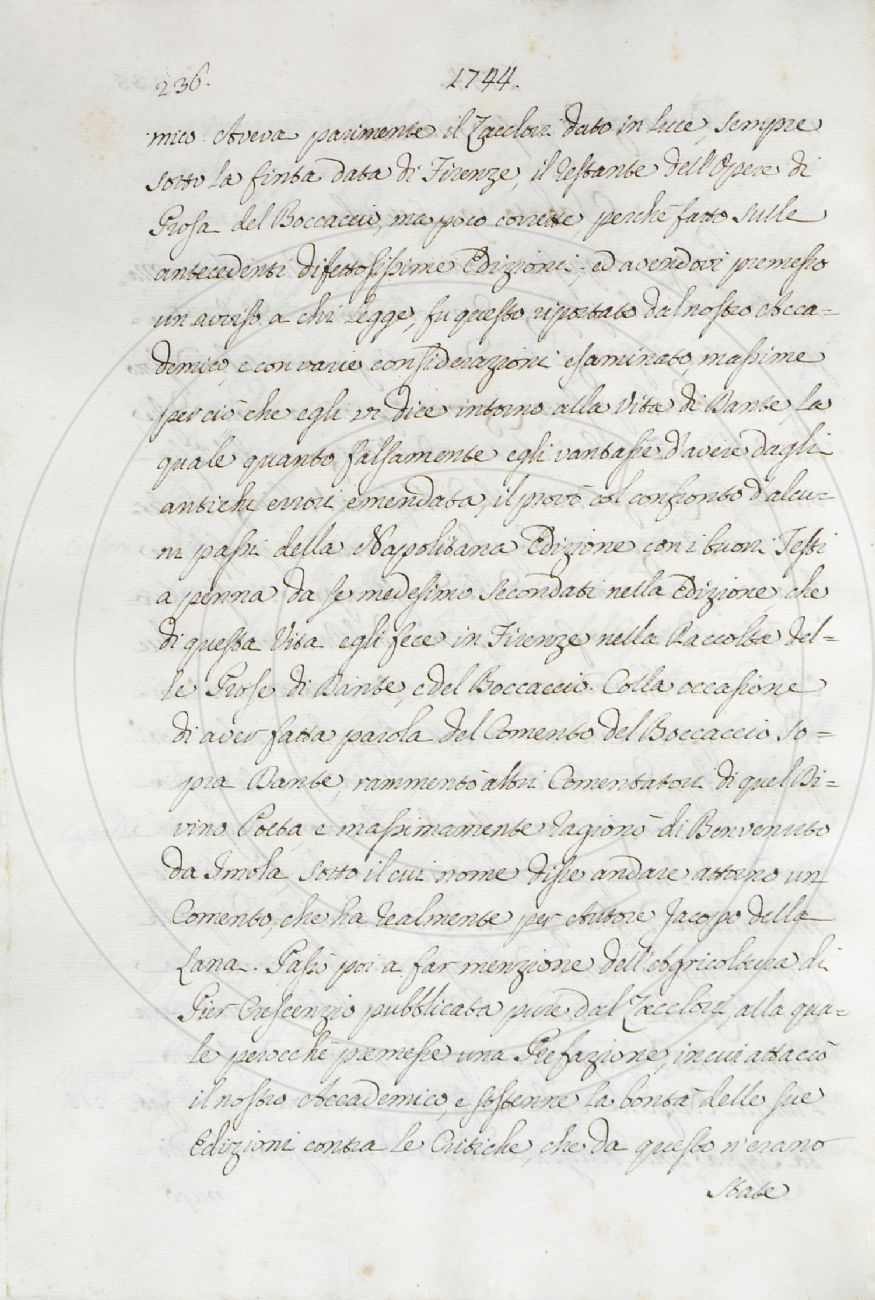 236.
1744.
mico. Aveva parimente il Zacclori dato in luce, sempre
sotto la finta data di Firenze, il restante dell'Opere di
Prosa del Boccaccio, ma poco corrette, perchè fatto sulle
antecedenti difettosissime Edizioni; ed avendovi premesso
un avviso a chi legge, fu questo riportato dal nostro Acca=
demico, e con varie considerazioni esaminato, massime
per ciò, che egli vi dice intorno alla Vita di Dante, la
quale quanto falsamente egli vantasse d'avere dagli
antichi errori emendata, il provò col confronto d'alcu=
ni passi della Napolitana Edizione con i buoni Testi
a penna da se medesimo secondati nella Edizione, che
di questa Vita egli fece in Firenze nella Raccolta del=
le Prose di Dante, e del Boccaccio. Colla occasione
di aver fatta parola del Comento del Boccaccio so=
pra Dante, rammentò altri Comentatori di quel Di=
vino Poeta, e massimamente ragionò di Benvenuto
da Imola sotto il cui nome disse andare attorno un
Comento, che ha realmente per Autore Jacopo della
Lana. Passò poi a far menzione dell'Agricoltura di
Pier Crescenzio pubblicata pure dal Zacclori, alla qua=
le perocchè premesse una Prefazione, in cui attaccò
il nostro Accademico, e sostenne la bontà delle sue
Edizioni contra le Critiche, che da questo n'erano
state